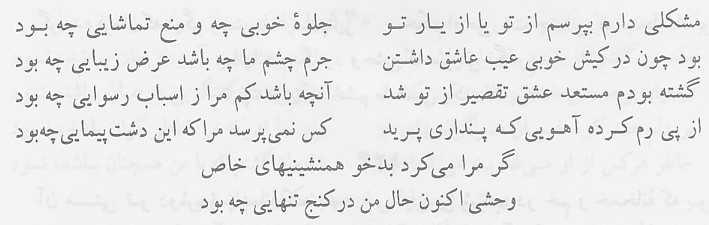 مشکلی دارم بپرسم از تو یا از یار تو جلوهٔ خوبی چه و منع تماشایی چه بود
بود چون در کیش خوبی عیب عاشق داشتن جرم چشم ما چه باشد عرض زیبایی چه بود
گشته بودم مستعد عشق تقصیر از تو شد آنچه باشد کم مرا ز اسباب رسوایی چه بود
از پی رم کرده آهویی که پنداری پرید کس نمی‌پرسد مرا که این دشت‌پیمایی چه‌بود
گر مرا می‌کرد بدخو همنشینیهای خاص
وحشی اکنون حال من در کنج تنهایی چه بود